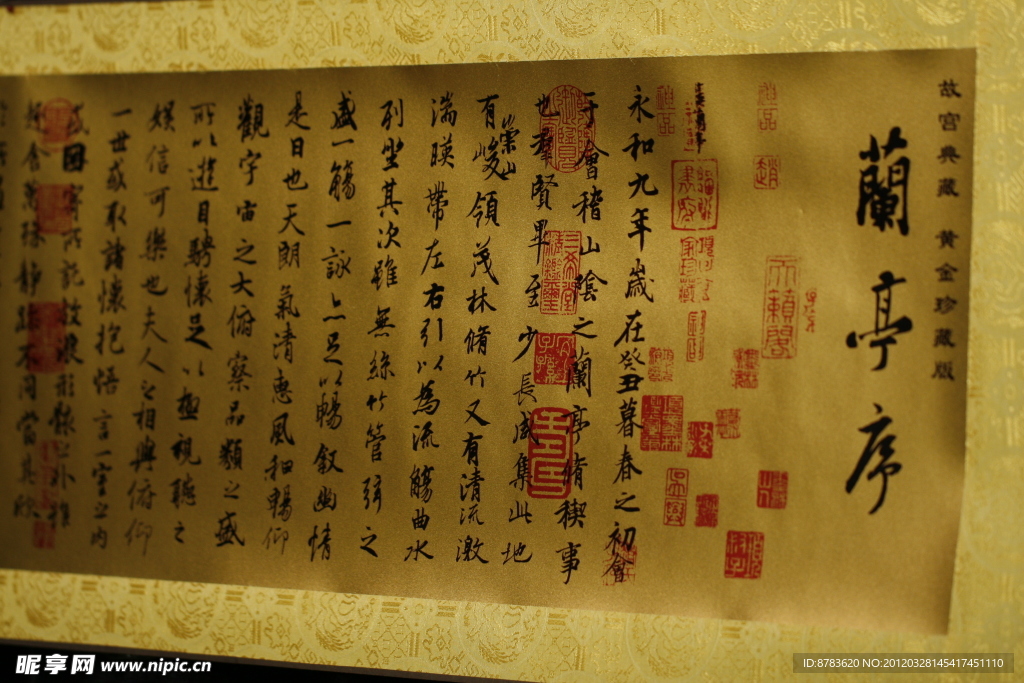 故宮典藏 黄金珍藏版
蘭亭序
永和九年歲在癸丑暮春之初會
于會稽山陰之蘭亭脩禊事
也羣賢畢至少長咸集此地
有崇山峻領茂林脩竹又有清流激
湍暎帶左右引以為流觴曲水
列坐其次雖無絲竹管弦之
盛一觴一詠亦足以暢敘幽情
是日也天朗氣清惠風和暢仰
觀宇宙之大俯察品類之盛
所以遊目騁懷足以極視聽之
娛信可樂也夫人之相與俯仰
一世或取諸懷抱悟言一室之內
或因寄所託放浪形骸之外雖
趣舍萬殊靜躁不同當其欣
昵享网 www.nipic.cn
ID:8783620 NO:20120328145417451110